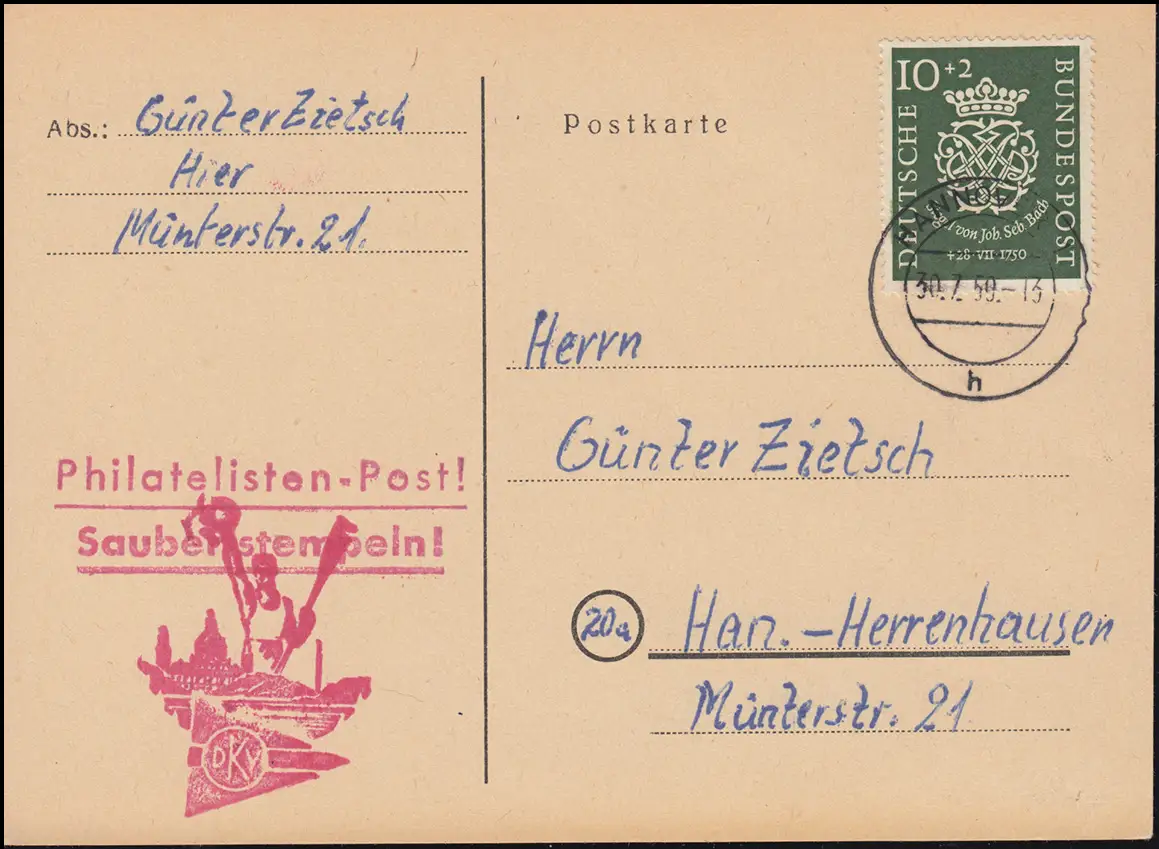 Abs.: Günter Zietsch
Hier
Münterstr. 21.
Postkarte
10+2
DEUTSCHE
BUNDESPOST
von Joh. Seb. Bach
+28·VII·1750
HANNO
30.7.50.-13
h
Herrn
Günter Zietsch
20a Han.-Herrenhausen
Münterstr. 21
Philatelisten-Post!
Sauber stempeln!
DKV